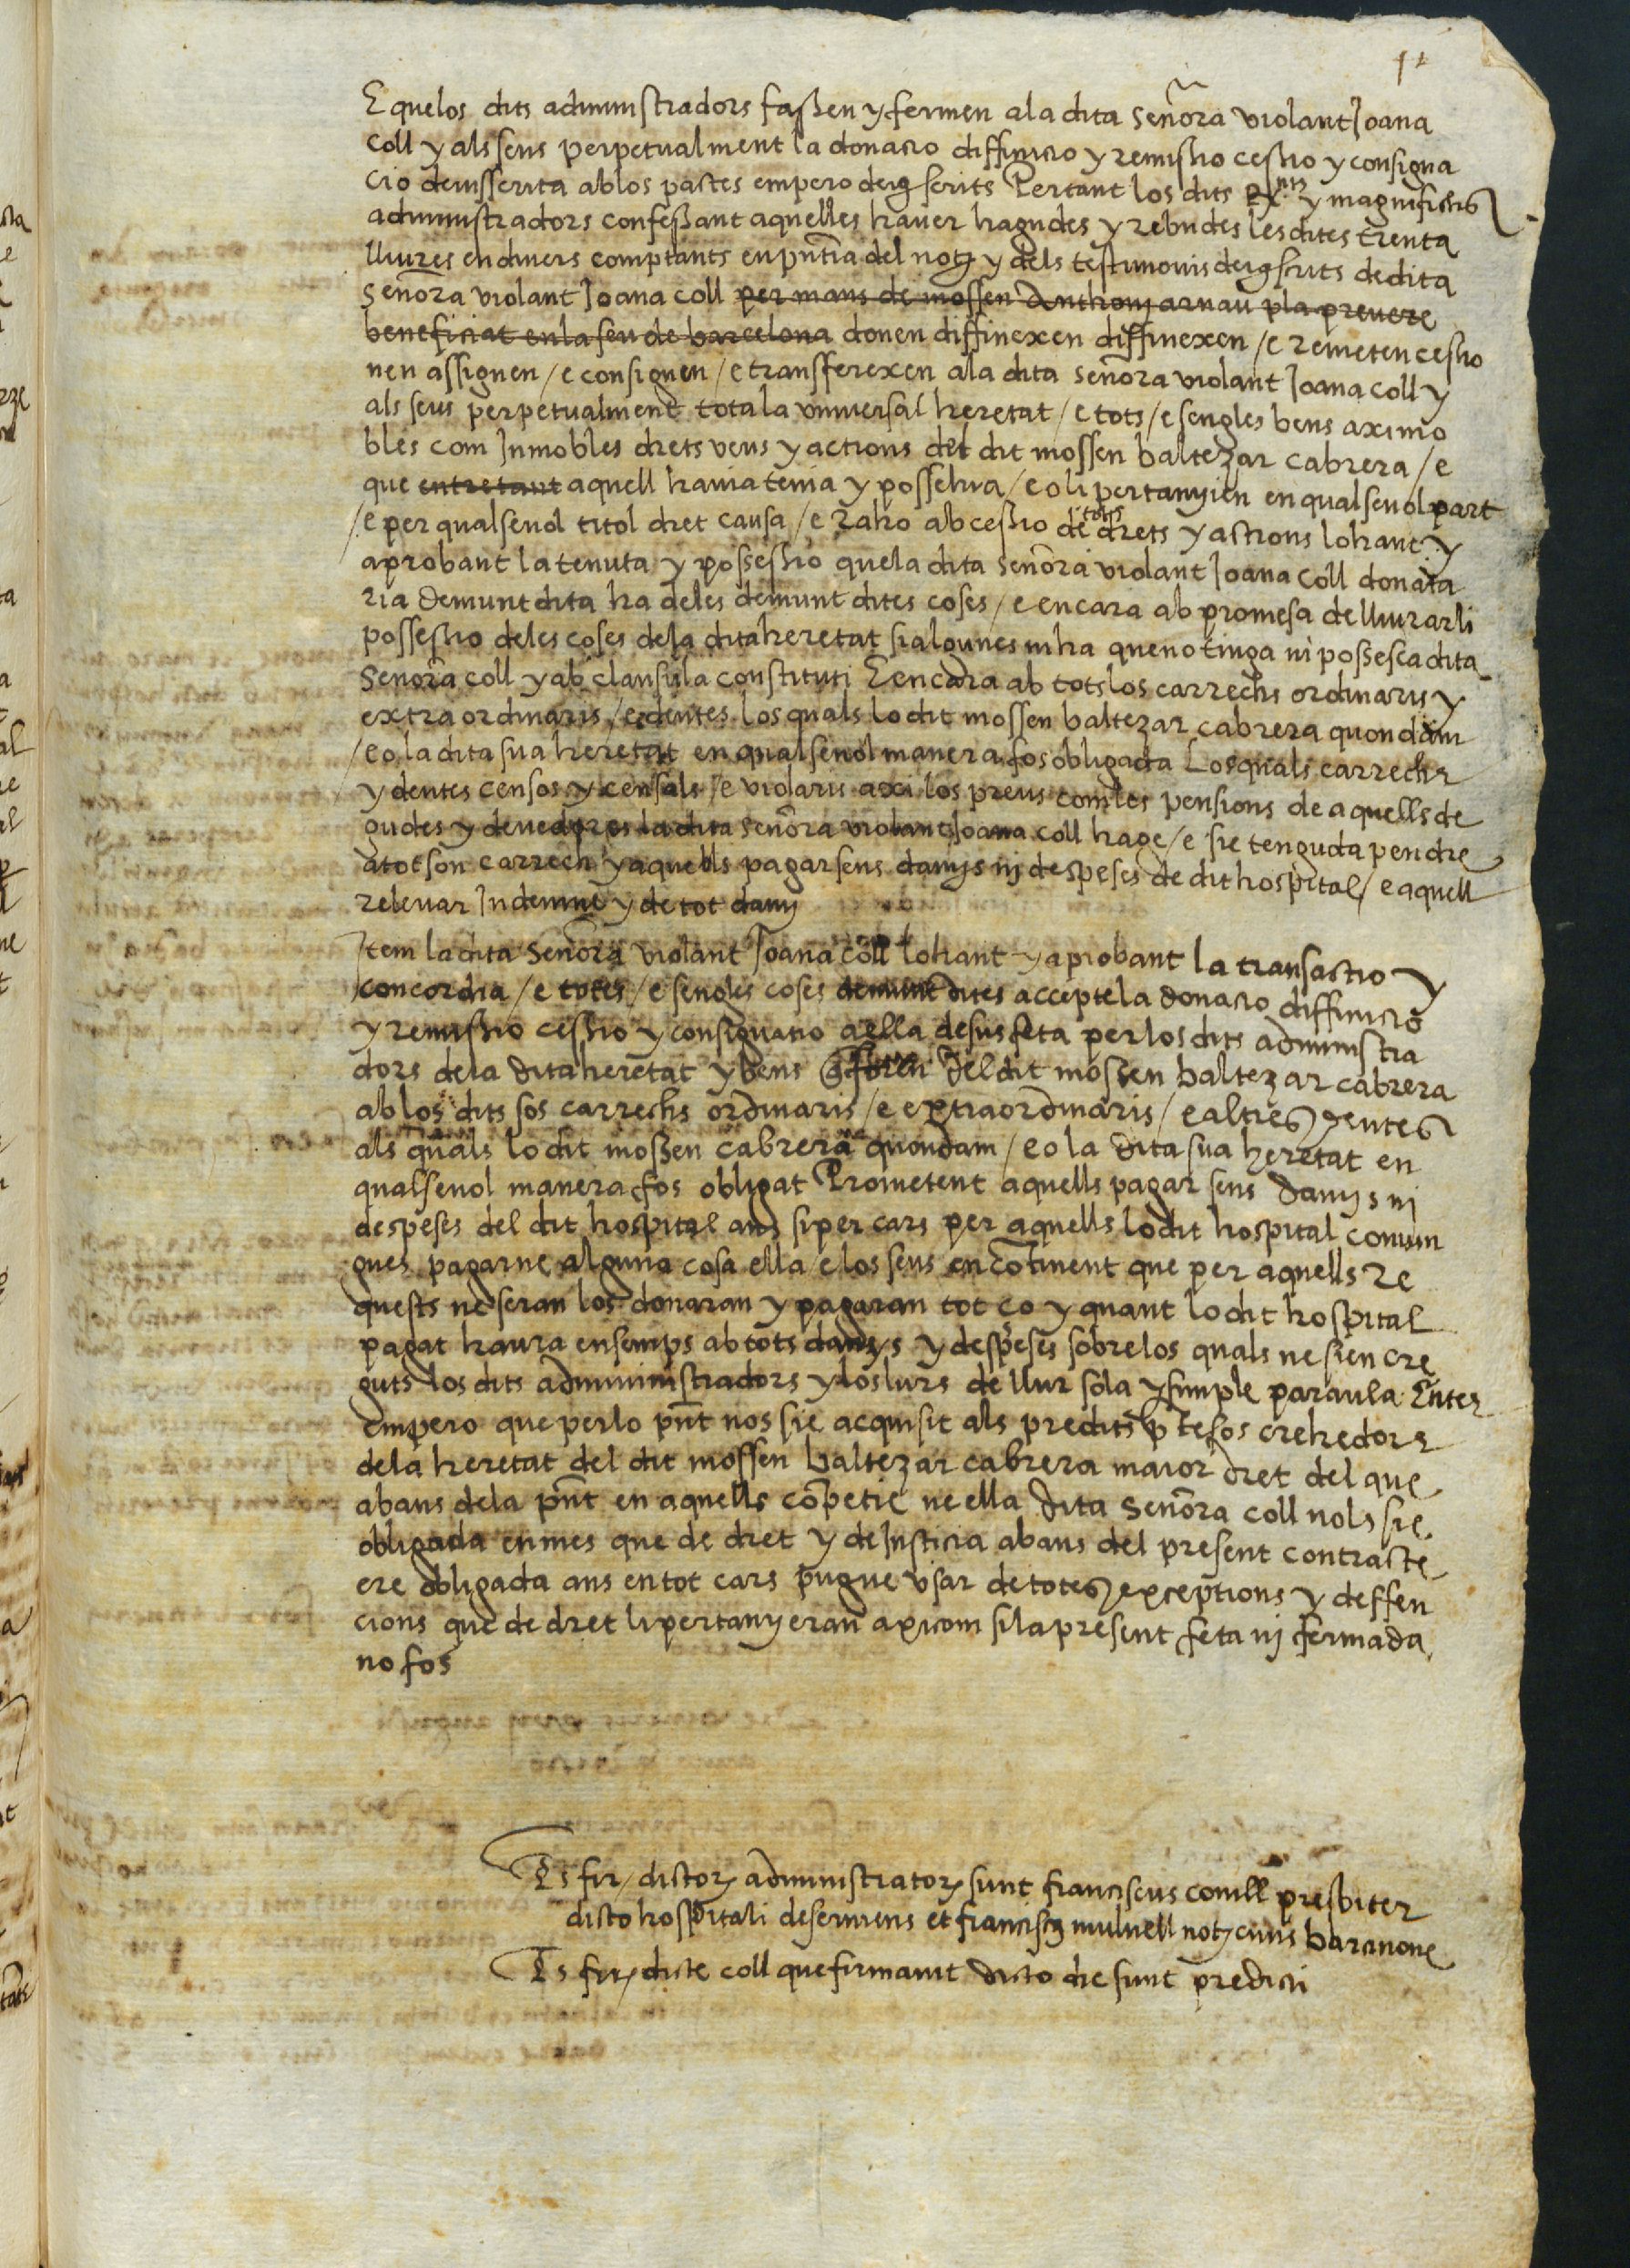 E quelos dits administradors fassen y fermen ala dita señora violant Joana
Coll y als seus perpetualment la donacio diffinicio y remissio cessio y consigna
cio deiusscrita ab los pactes empero deius scrits Pertant los dits R.nts y magnifichs
administradors confessant aquelles haver hagudes y rebudes les dites trenta
lliures en diners comptants en pntia del noty y dels testimonis deius scrits de dita
señora violant Joana coll per mans de mossen Anthonj arnau pla prevere
beneficiat en la seu de barcelona donen diffinexen diffinexen / e remeten cessio
nen assignen / e consignen / e transferexen ala dita señora violant Joana coll y
als seus perpetualment tota la universal heretat / e tots / e sengles bens axi mo
bles com Inmobles drets veus y actions del dit mossen baltezar cabrera / e
que entretant aquell havia tenia y possehia / e o li pertanyien en qualsevol part
/ e per qualsevol titol dret causa / e raho ab cessio de tots drets y actions lohant y
aprobant la tenuta y possessio quela dita señora violant Joana coll donata
ria demunt dita ha deles demunt dites coses / e encara ab promesa de lliurarli
possessio deles coses dela dita heretat si algunes ni ha que no tinga ni possesca dita
señora coll y ab clausula constituti E encara ab tots los carrechs ordinaris y
extraordinaris / e deutes los quals lo dit mossen baltezar cabrera quondam
/ e o la dita sua heretat en qualsevol manera fos obligada Los quals carrechs
y deutes censos y censals / e violaris axi los preus com les pensions de aquells de
gudes y devedores la dita señora violant Joana coll hage / e sie tenguda pendre
a tot son carrech y aquells pagar sens danys nj despeses de dit hospital / e aquell
relevar Indemne y de tot dany
Item la dita señora violant Joana coll lohant y aprobant la transactio y
concordia / e totes / e sengles coses demunt dites accepte la donacio diffinicio
y remissio cessio y consignatio a ella desus feta per los dits administra
dors dela dita heretat y bens q foren del dit mossen baltezar cabrera
ab los dits sos carrechs ordinaris / e extraordinaris / e altres deutes
als quals lo dit mossen cabrera quondam / e o la dita sua heretat en
qualsevol manera fos obligat Prometent aquells pagar sens danys nj
despeses del dit hospital ans si per cars per aquells lo dit hospital convin
gues pagarne alguna cosa ella / e los seus encotinent que per aquells re
quests ne seran los donaran y pagaran tot ço y quant lo dit hospital
pagat haura ensemps ab tots danys y despeses sobre los quals ne sien cre
guts los dits administradors y los lurs de llur sola y simple paraula Entes
empero que per lo pnt nos sie acquisit als predits p tesos crehedors
dela heretat del dit mossen baltezar cabrera maior dret del que
abans dela pnt en aquells copetie ne ella dita señora coll nols sie
obligada en mes que de dret y de Justicia abans del present contracte
ere obligada ans en tot cars pugue usar de totes exceptions y deffen
cions que de dret li pertanyeran axicom si la present feta nj fermada
no fos
Ts fir / dictor administrator sunt franciscus conill presbiter
dicto hospitali deserviens et francisc mulnell noty civis barcinone
Ts fir dicte coll que firmavit dicto die sunt predicti